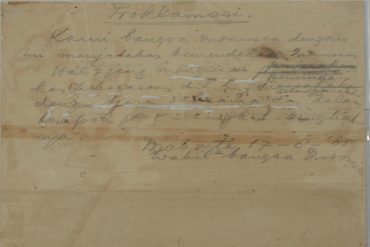 Proklamasi.
Kami bangsa Indonesia dengan
ini menjatakan kemerdekaan Indonesia
Hal2 jang mengenai
kekoeasaan d.l.l.,
dengan tjara saksama dan dalam
tempoh jang sesingkat-singkat
nja.
Djakarta, 17 - 8 - '05
Wakil2 bangsa Indonesia